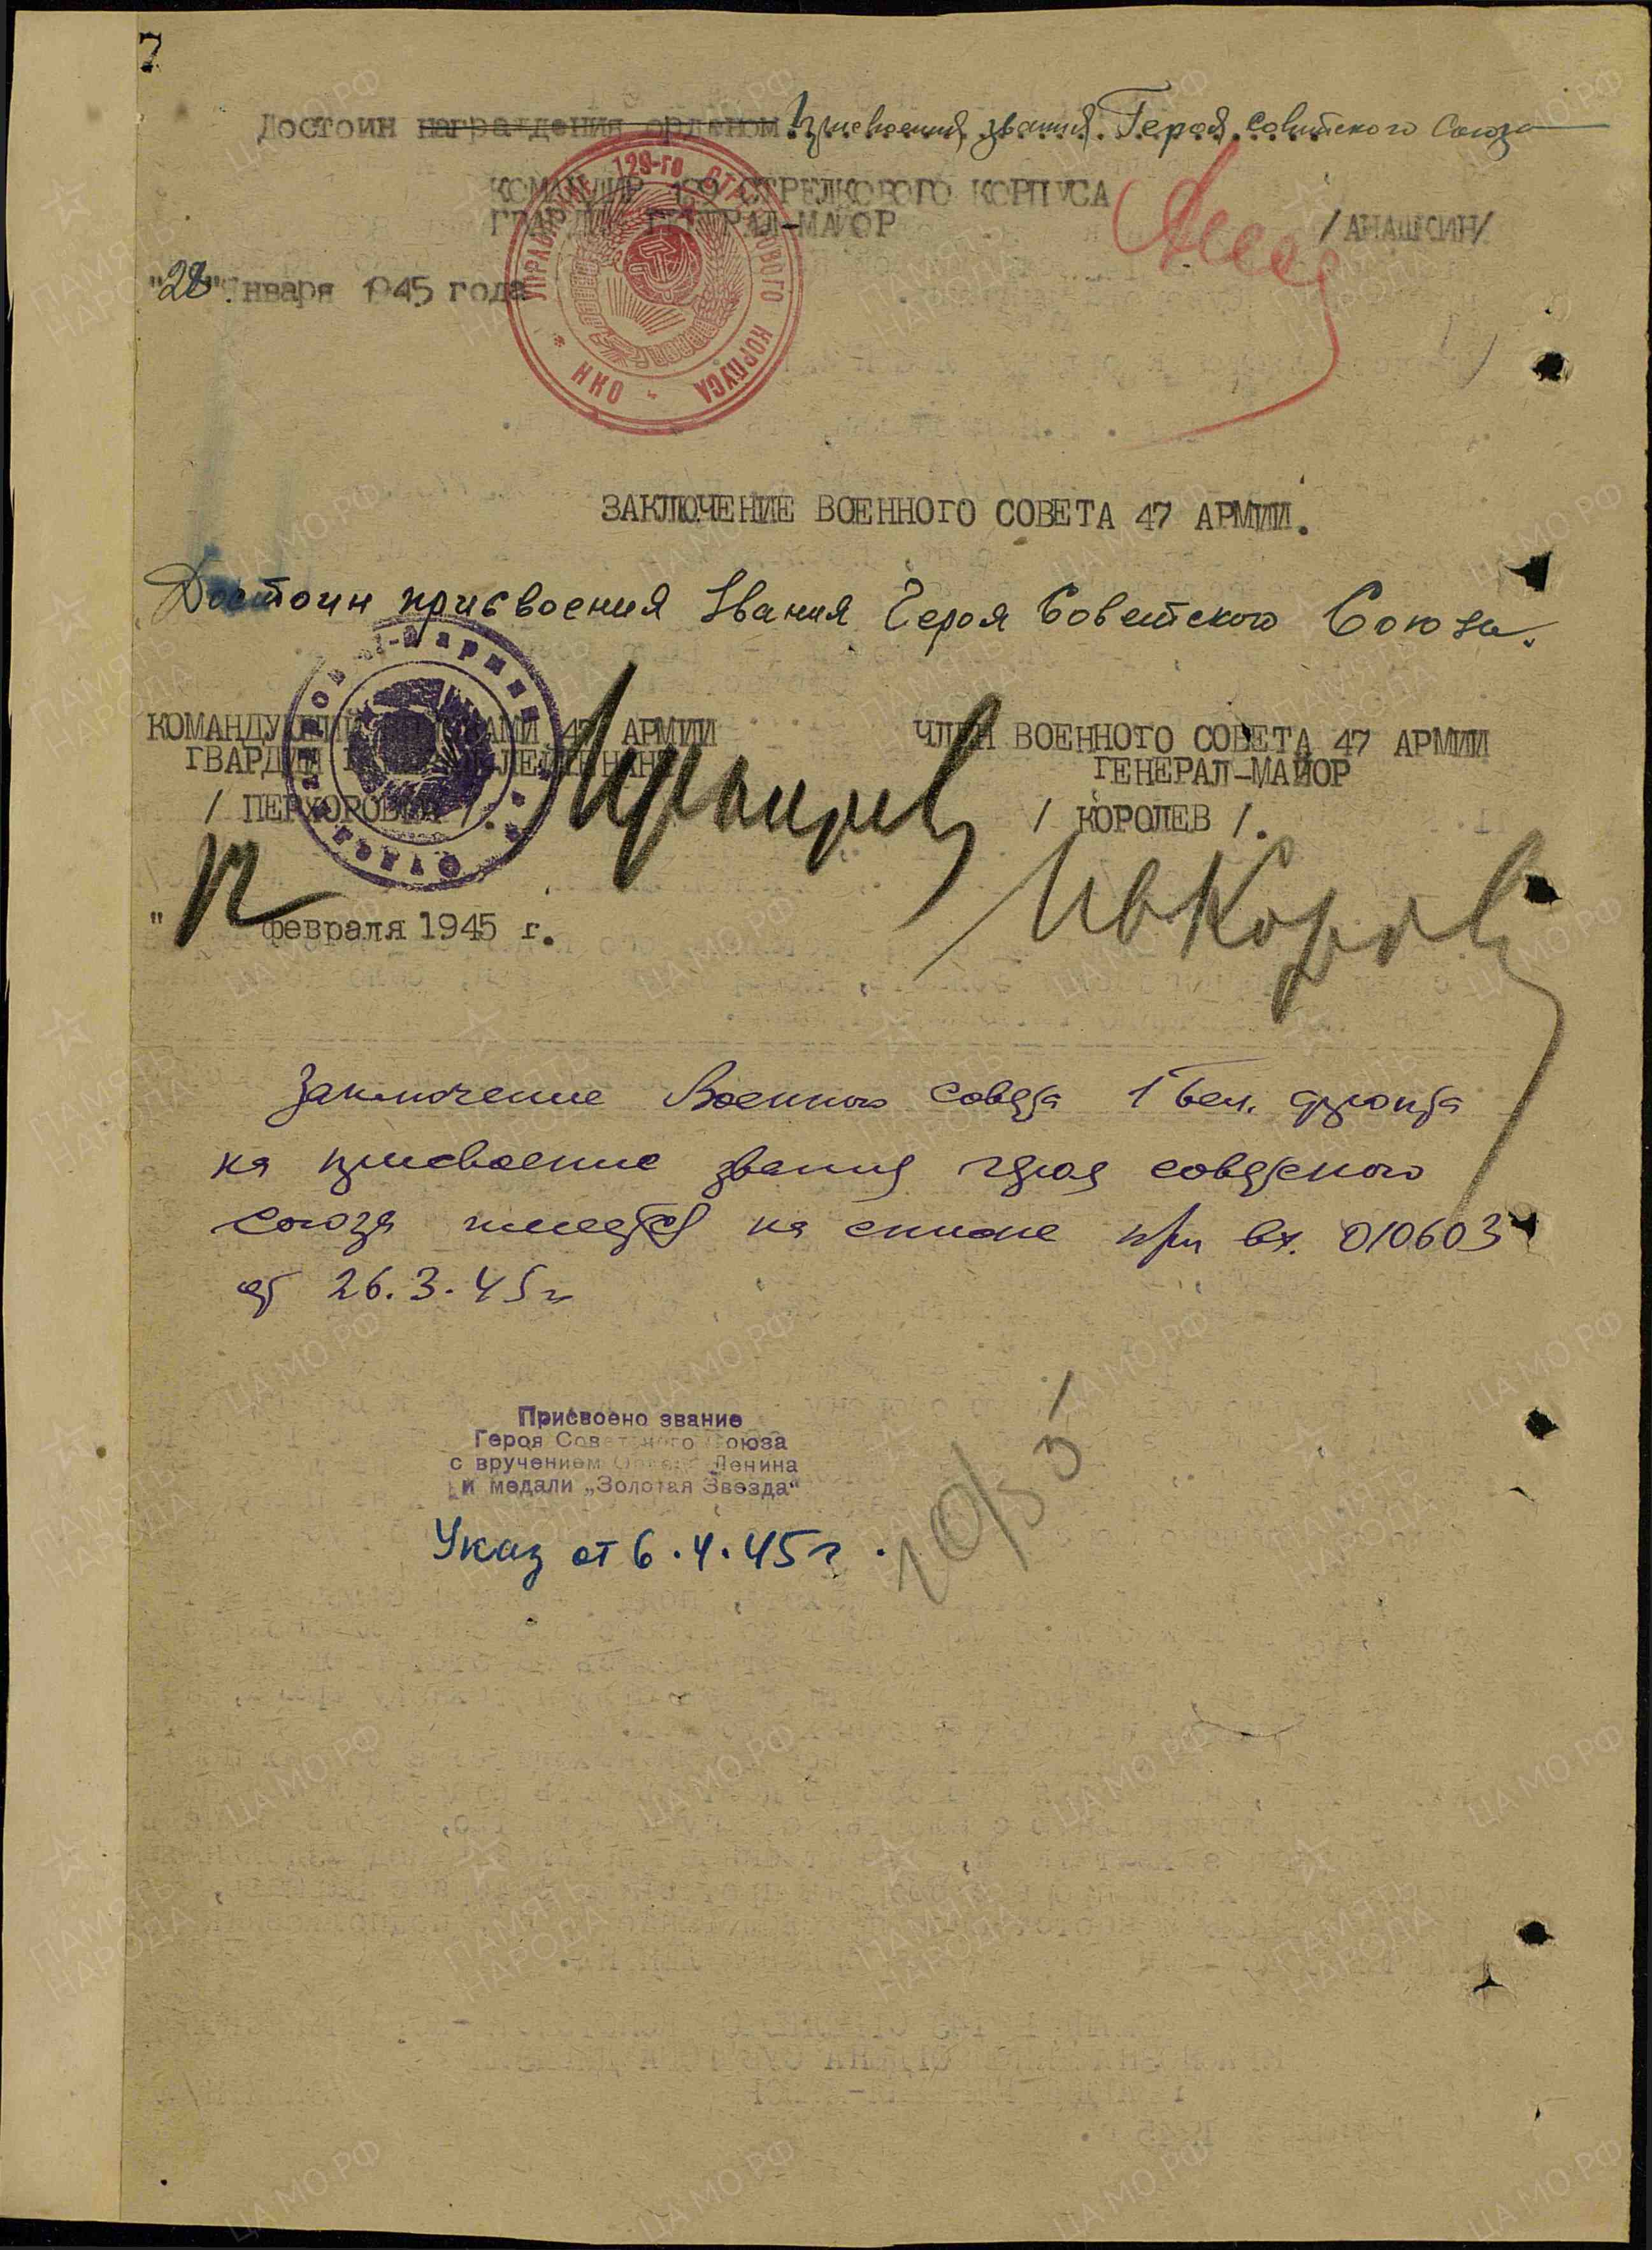 7
Достоин награждения орденом присвоения звания Героя Советского Союза
КОМАНДИР 129 СТРЕЛКОВОГО КОРПУСА
ГВАРДИИ ГЕНЕРАЛ-МАЙОР
/АНАШКИН/
"28" Января 1945 года
УПРАВЛЕНИЕ 129-го СТРЕЛКОВОГО КОРПУСА * НКО *
ЗАКЛЮЧЕНИЕ ВОЕННОГО СОВЕТА 47 АРМИИ.
Достоин присвоения звания Героя Советского Союза.
КОМАНДУЮЩИЙ ВОЙСКАМИ 47 АРМИИ
ГВАРДИИ ГЕНЕРАЛ-ЛЕЙТЕНАНТ
/ ПЕРХОРОВИЧ /.
ЧЛЕН ВОЕННОГО СОВЕТА 47 АРМИИ
ГЕНЕРАЛ-МАЙОР
/ КОРОЛЕВ /.
"12 февраля 1945 г.
Заключение Военного совета 1 Бел. фронта
на присвоение звания героя советского
союза имеется на списке при вх. 010603
от 26.3.45г
Присвоено звание
Героя Советского Союза
с вручением Ордена Ленина
и медали „Золотая Звезда“
Указ от 6.4.45г.
10/5
ПАМЯТЬ НАРОДА
ЦА МО РФ